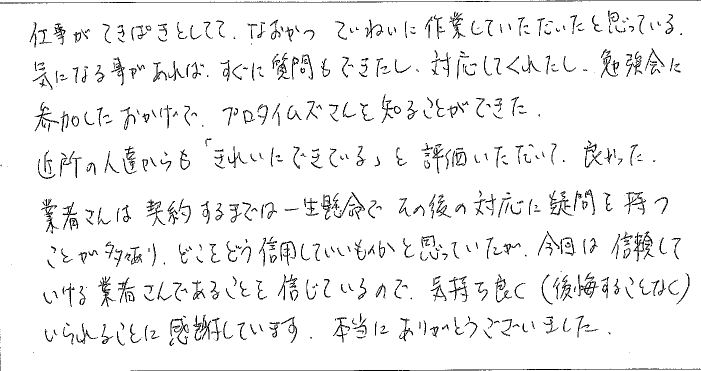 仕事がてきぱきとしてて、なおかつ ていねいに作業していただいたと思っている。
気になる事があれば、すぐに質問もできたし、対応してくれたし、勉強会に
参加したおかげで、プロタイムズさんを知ることができた。
近所の人達からも「きれいにできている」と評価いただいて、良かった。
業者さんは契約するまでは一生懸命で その後の対応に疑問を持つ
ことが多々あり、どこをどう信用していいものかと思っていたが、今回は信頼して
いける業者さんであることを信じているので、気持ち良く(後悔することなく)
いられることに感謝しています。本当にありがとうございました。